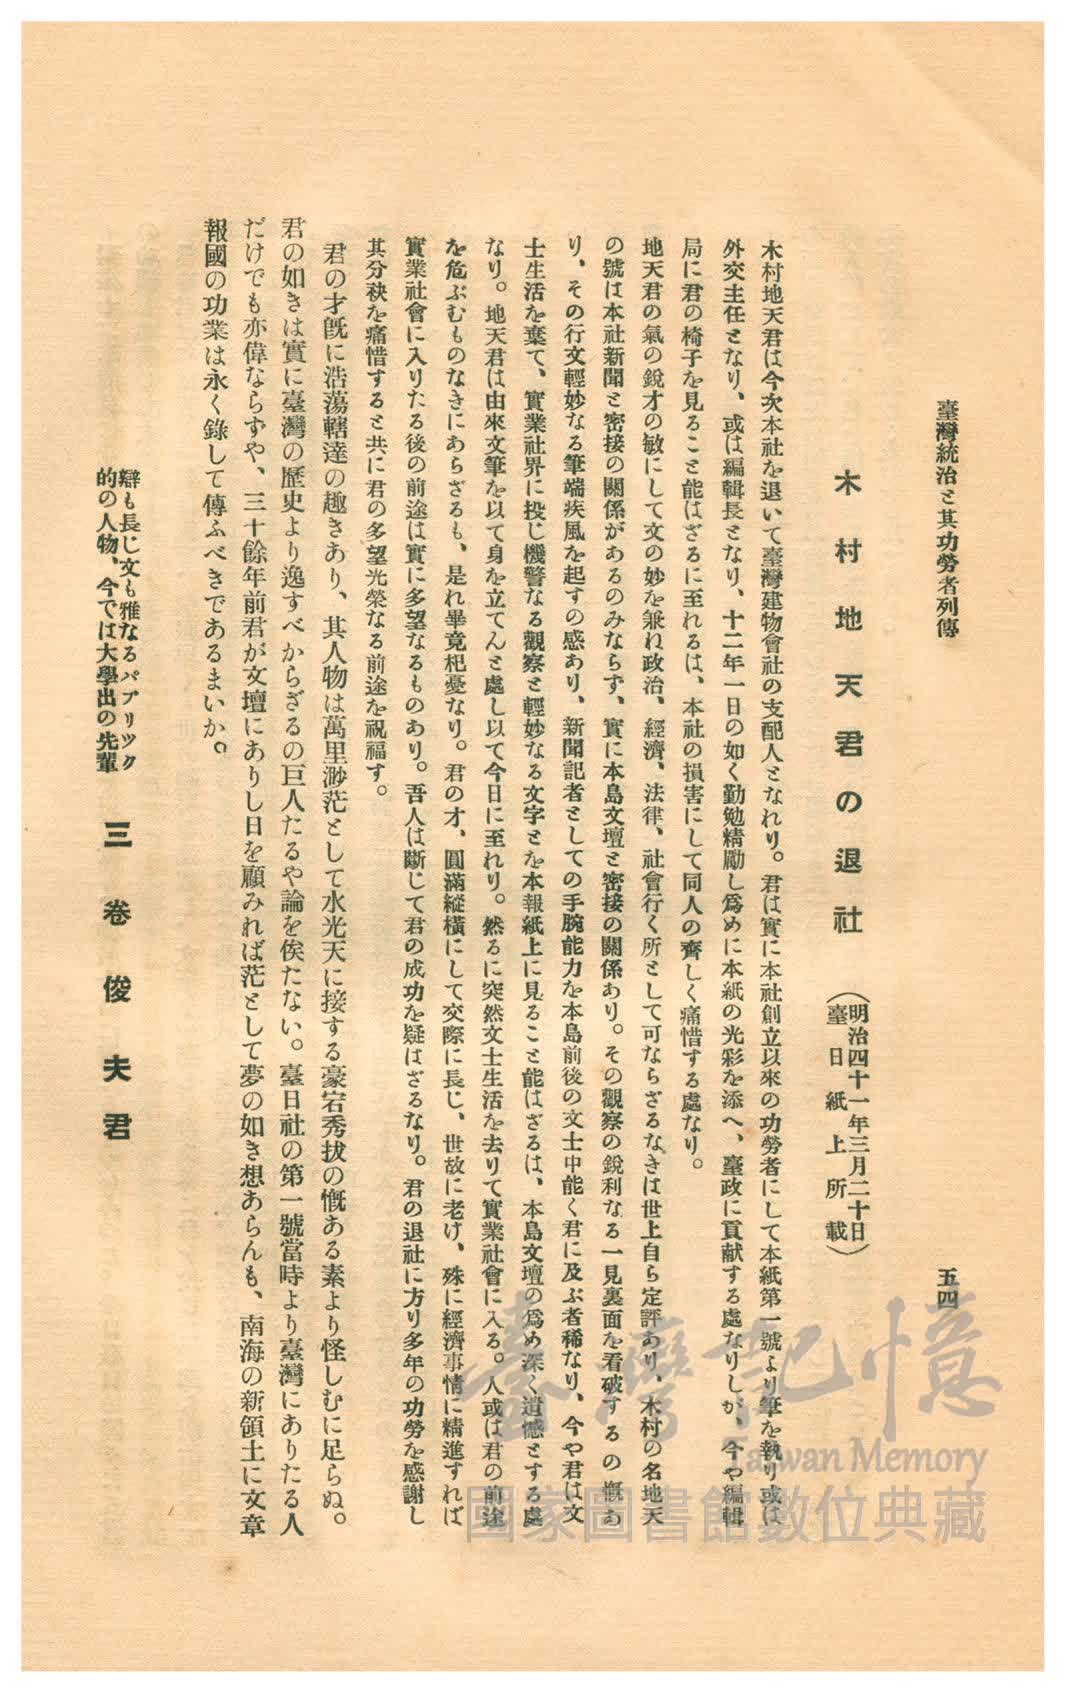 臺灣統治と其功勞者列傳
五四
木村地天君の退社
（明治四十一年三月二十日
臺日紙上所載）
木村地天君は今次本社を退いて臺灣建物會社の支配人となれり。君は實に本社創立以來の功勞者にして本紙第一號より筆を執り或は
外交主任となり、或は編輯長となり、十二年一日の如く勤勉精勵し爲めに本紙の光彩を添へ、臺政に貢献する處なりしが、今や編輯
局に君の椅子を見ること能はざるに至れるは、本社の損害にして同人の齊しく痛惜する處なり。
地天君の氣の鋭才の敏にして文の妙を兼ね政治、經濟、法律、社會行く所として可ならざるなきは世上自ら定評あり、木村の名地天
の號は本社新聞と密接の關係があるのみならず、實に本島文壇と密接の關係あり。その觀察の鋭利なる一見裏面を看破するの慨あ
り、その行文輕妙なる筆端疾風を起すの感あり、新聞記者としての手腕能力を本島前後の文士中能く君に及ぶ者稀なり、今や君は文
士生活を棄て、實業社界に投じ機警なる觀察と輕妙なる文字とを本報紙上に見ること能はざるは、本島文壇の爲め深く遺憾とする處
なり。地天君は由來文筆を以て身を立てんと處し以て今日に至れり。然るに突然文士生活を去りて實業社會に入る。人或は君の前途
を危ぶむものなきにあらざるも、是れ畢竟杞憂なり。君の才、圓滿縱横にして交際に長じ、世故に老け、殊に經濟事情に精進すれば
實業社會に入りたる後の前途は實に多望なるものあり。吾人は斷じて君の成功を疑はざるなり。君の退社に方り多年の功勞を感謝し
其分袂を痛惜すると共に君の多望光榮なる前途を祝福す。
君の才既に浩蕩轄達の趣きあり、其人物は萬里渺茫として水光天に接する豪宕秀拔の慨ある素より怪しむに足らぬ。
君の如きは實に臺灣の歷史より逸すべからざるの巨人たるや論を俟たない。臺日社の第一號當時より臺灣にありたる人
だけでも亦偉ならずや、三十餘年前君が文壇にありし日を顧みれば茫として夢の如き想あらんも、南海の新領土に文章
報國の功業は永く錄して傳ふべきであるまいか。
辯も長じ文も雅なるパブリツク
的の人物、今では大學出の先輩
三卷俊夫君
臺灣記憶
Taiwan Memory
國家圖書館數位典藏